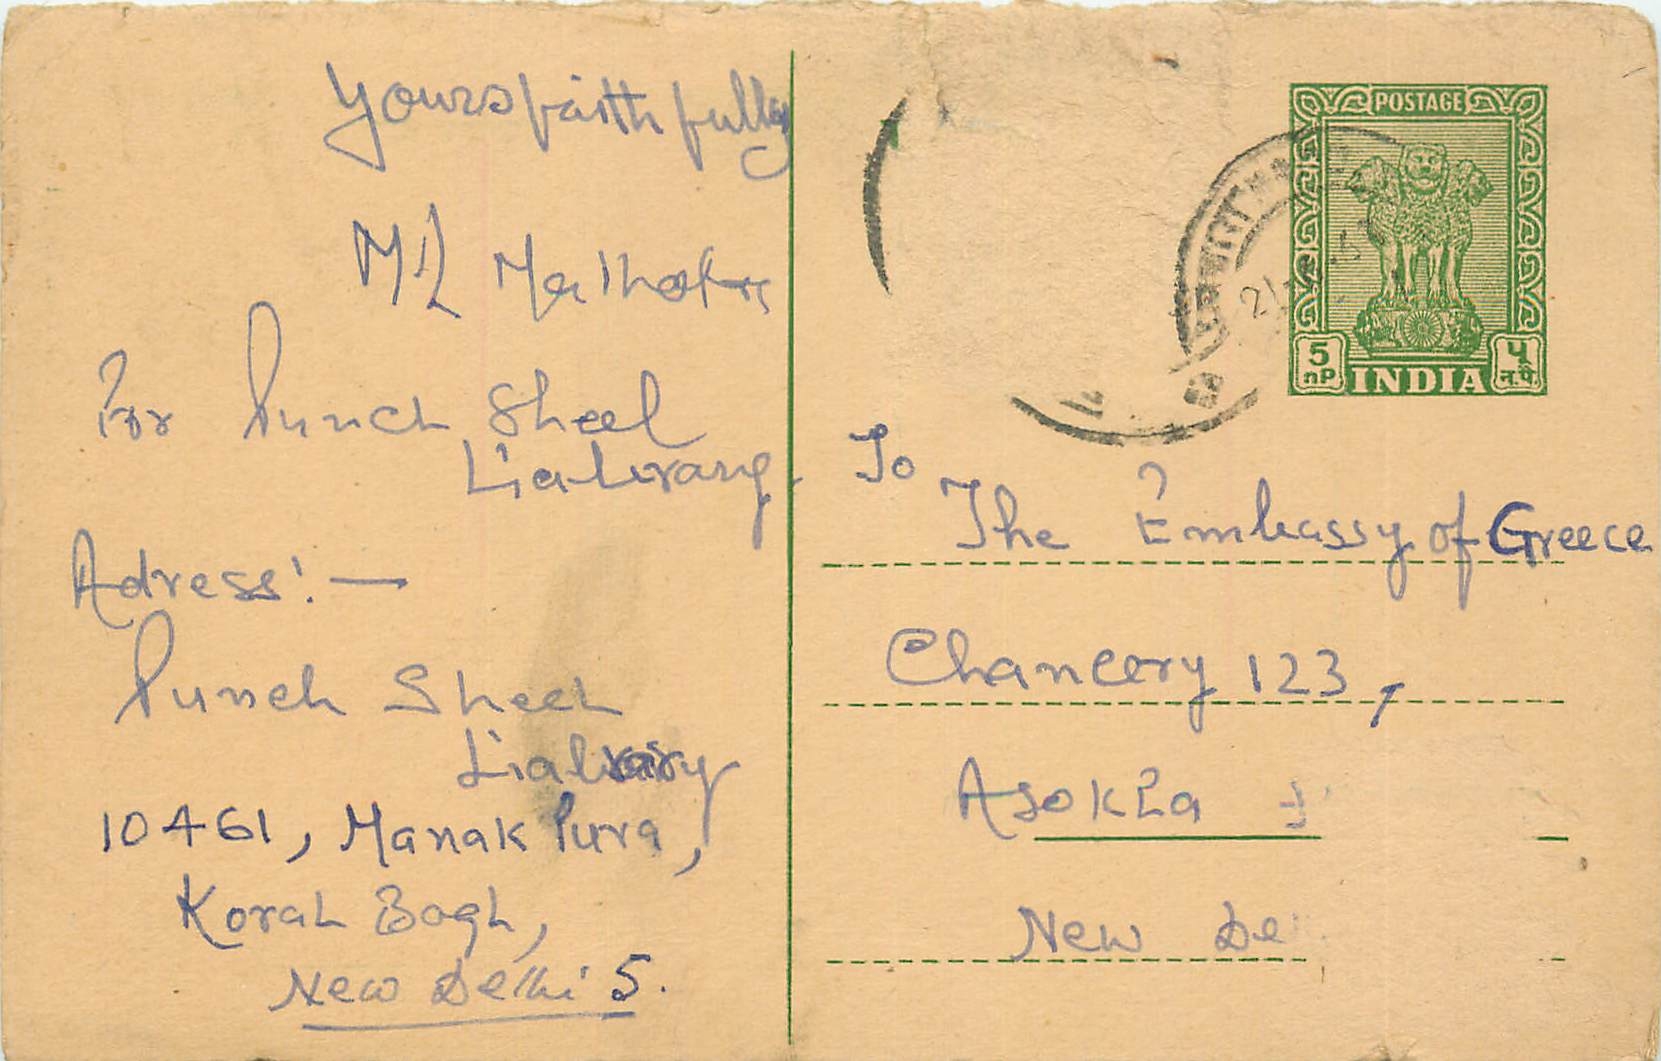 Yours faithfully
ML Malhotra
For Punch Sheel
Liabrary.
Adress:—
Punch Sheel
Liabrary
10461, Manak Pura,
Korah Bagh,
New Delhi 5.
POSTAGE
5 nP
५ न.पै.
INDIA
21
To
The Embassy of Greece
Chancery 123,
Asokha
New De